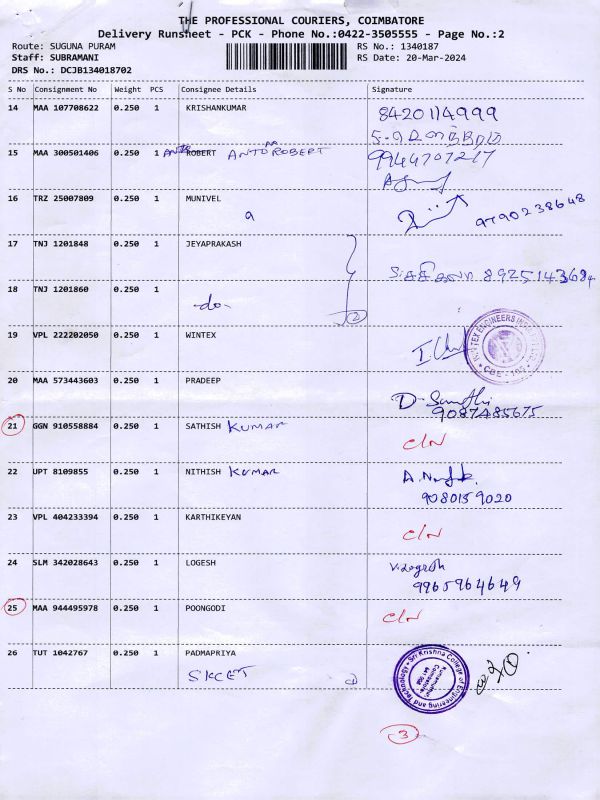 THE PROFESSIONAL COURIERS, COIMBATORE
Delivery Runsheet - PCK - Phone No.:0422-3505555 - Page No.:2
Route: SUGUNA PURAM RS No.: 1340187
Staff: SUBRAMANI RS Date: 20-Mar-2024
DRS No.: DCJB134018702
S No Consignment No Weight PCS Consignee Details Signature
14 MAA 107708622 0.250 1 KRISHANKUMAR 8420114999
15 MAA 300501406 0.250 1 ROBERT ANTO ROBERT 9944707217
16 TRZ 25007809 0.250 1 MUNIVEL 9790238648
a
17 TNJ 1201848 0.250 1 JEYAPRAKASH
8925143684
18 TNJ 1201860 0.250 1
-do-
2
19 VPL 222202050 0.250 1 WINTEX
20 MAA 573443603 0.250 1 PRADEEP
9087485675
21 GGN 910558884 0.250 1 SATHISH KUMAR C/N
22 UPT 8109855 0.250 1 NITHISH KUMAR
9080159020
23 VPL 404233394 0.250 1 KARTHIKEYAN C/N
24 SLM 342028643 0.250 1 LOGESH V.Logesh
9965964649
25 MAA 944495978 0.250 1 POONGODI C/N
26 TUT 1042767 0.250 1 PADMAPRIYA
SKCET 1
Sri Krishna College of Engineering and Technology
3